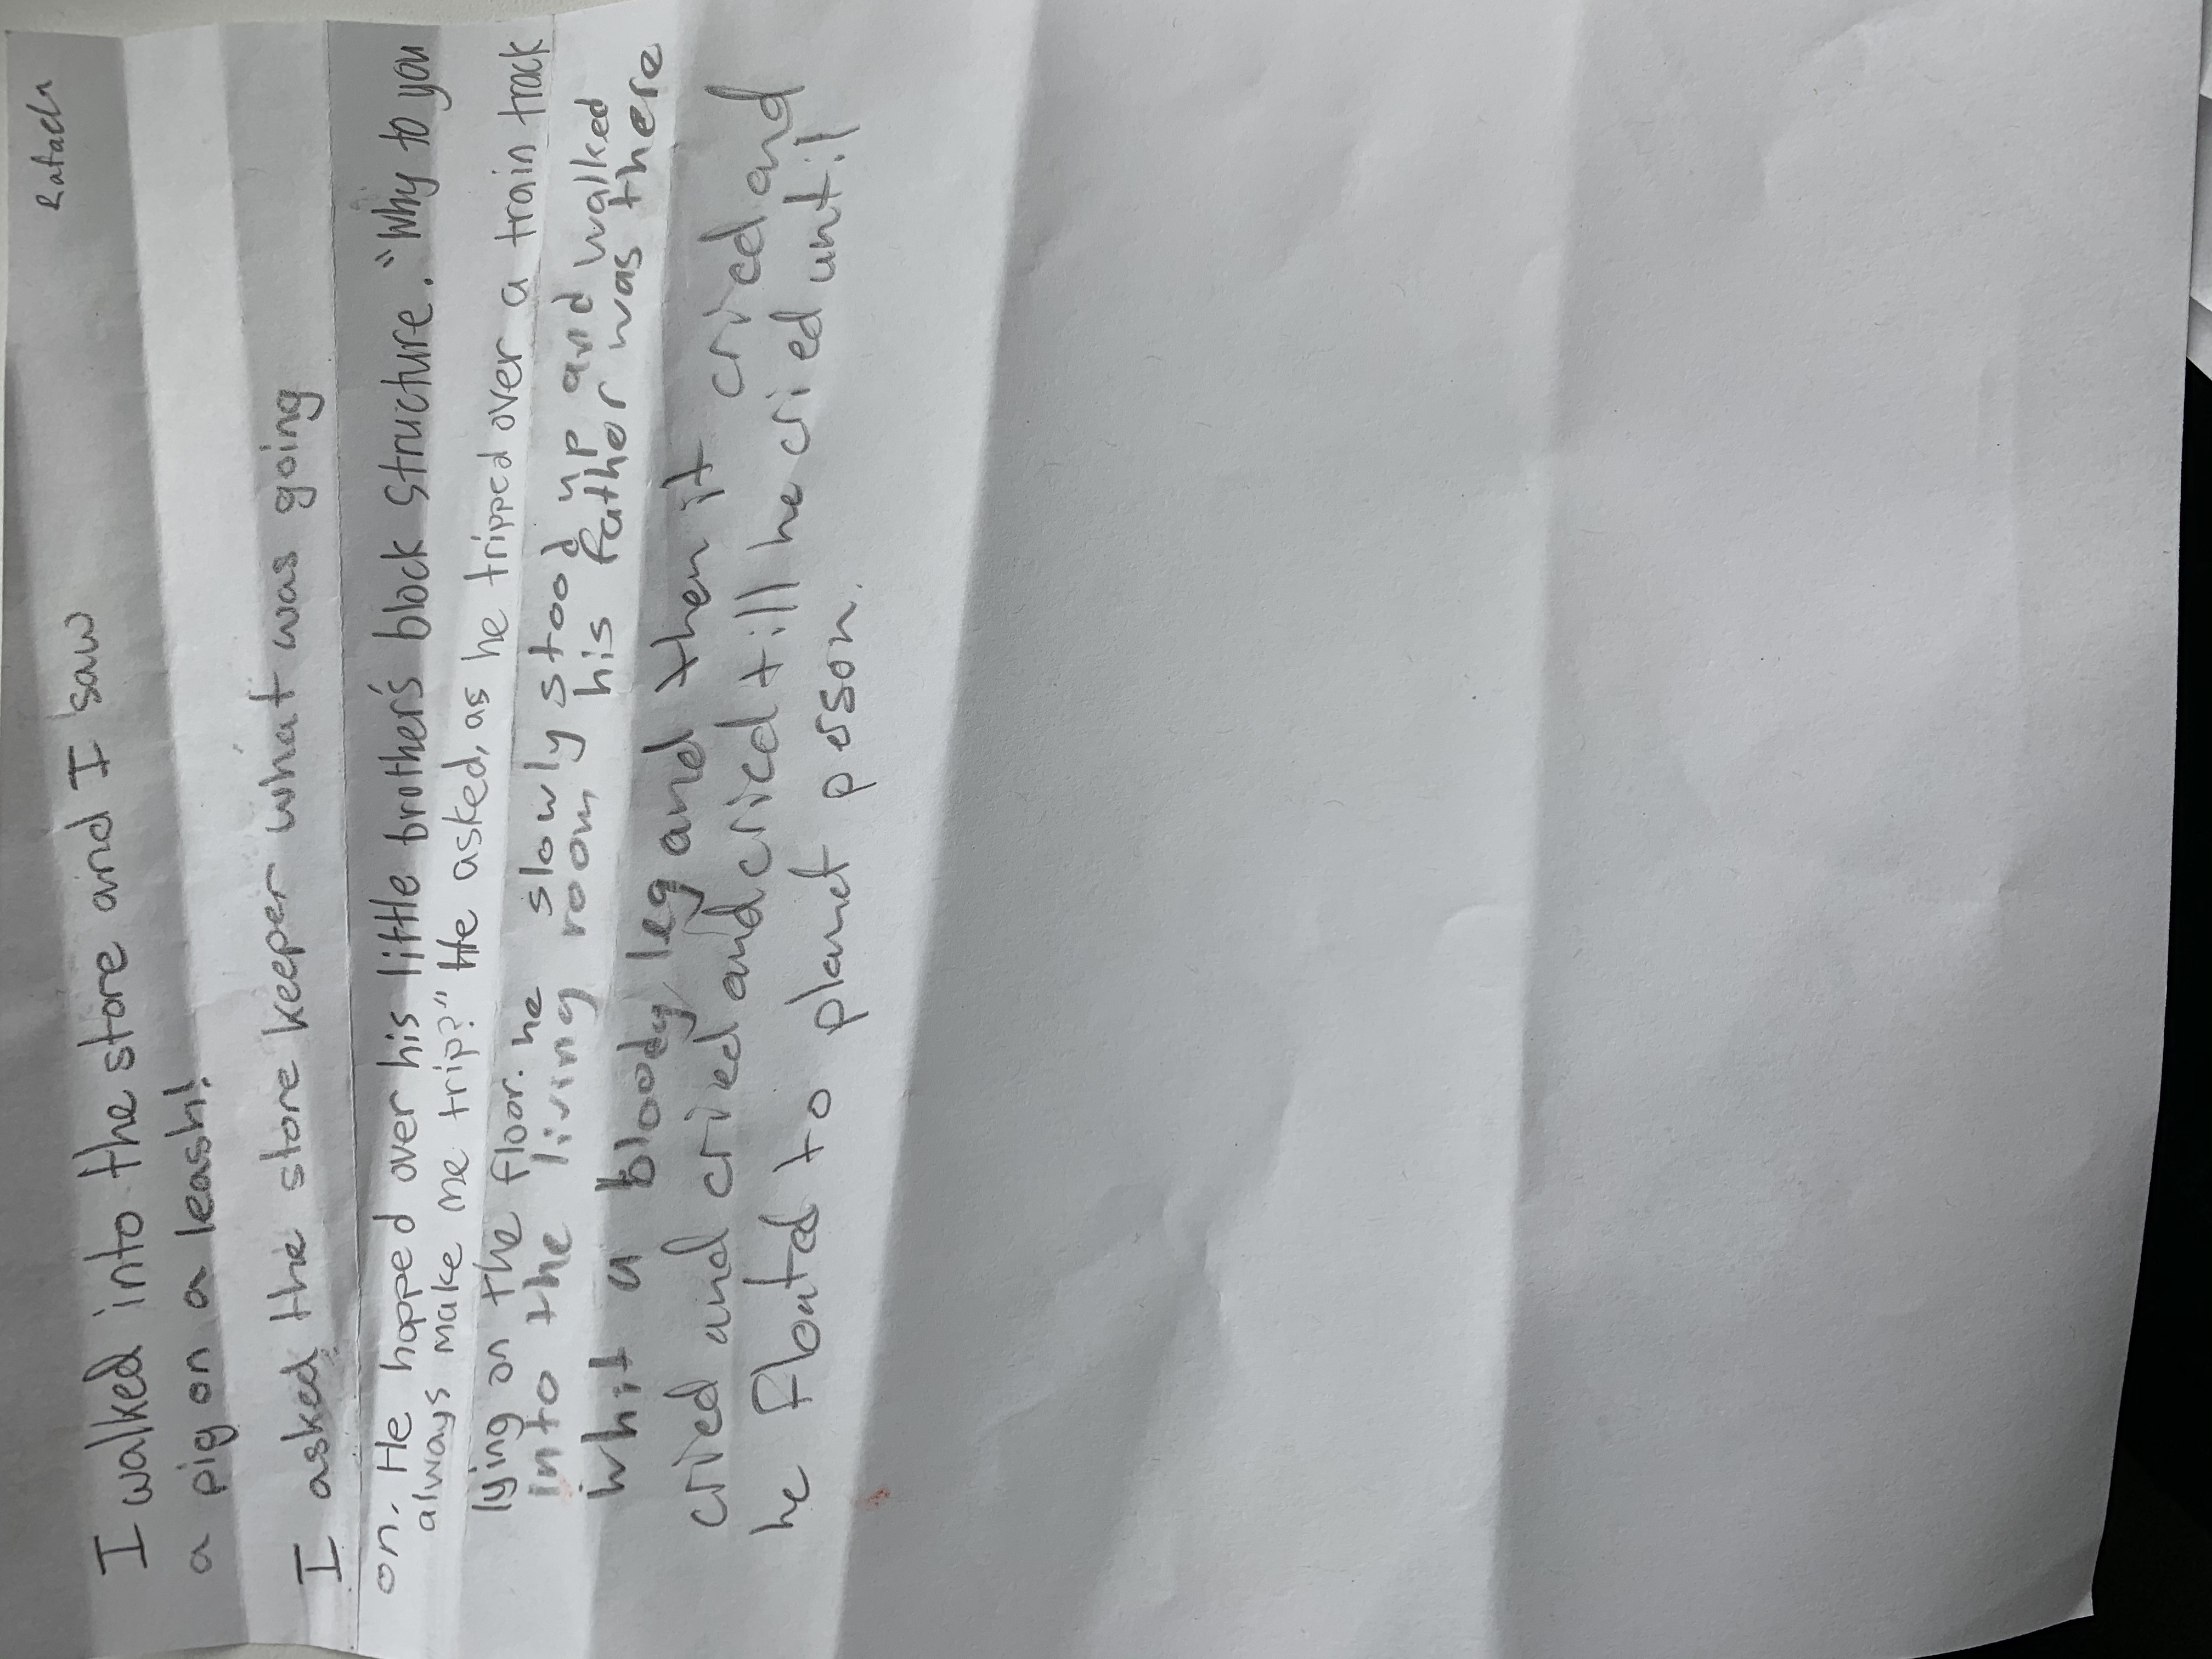 Rafael
I walked into the store and I saw
a pig on a leash!
I asked the store keeper what was going
on. He hopped over his little brother's block structure. "Why to you
always make me trip?" He asked, as he tripped over a train track
lying on the floor. he slowly stood up and walked
into the living room his father was there
whit a bloody leg and then it cried and
cried and cried and cried till he cried until
he floated to planet person.